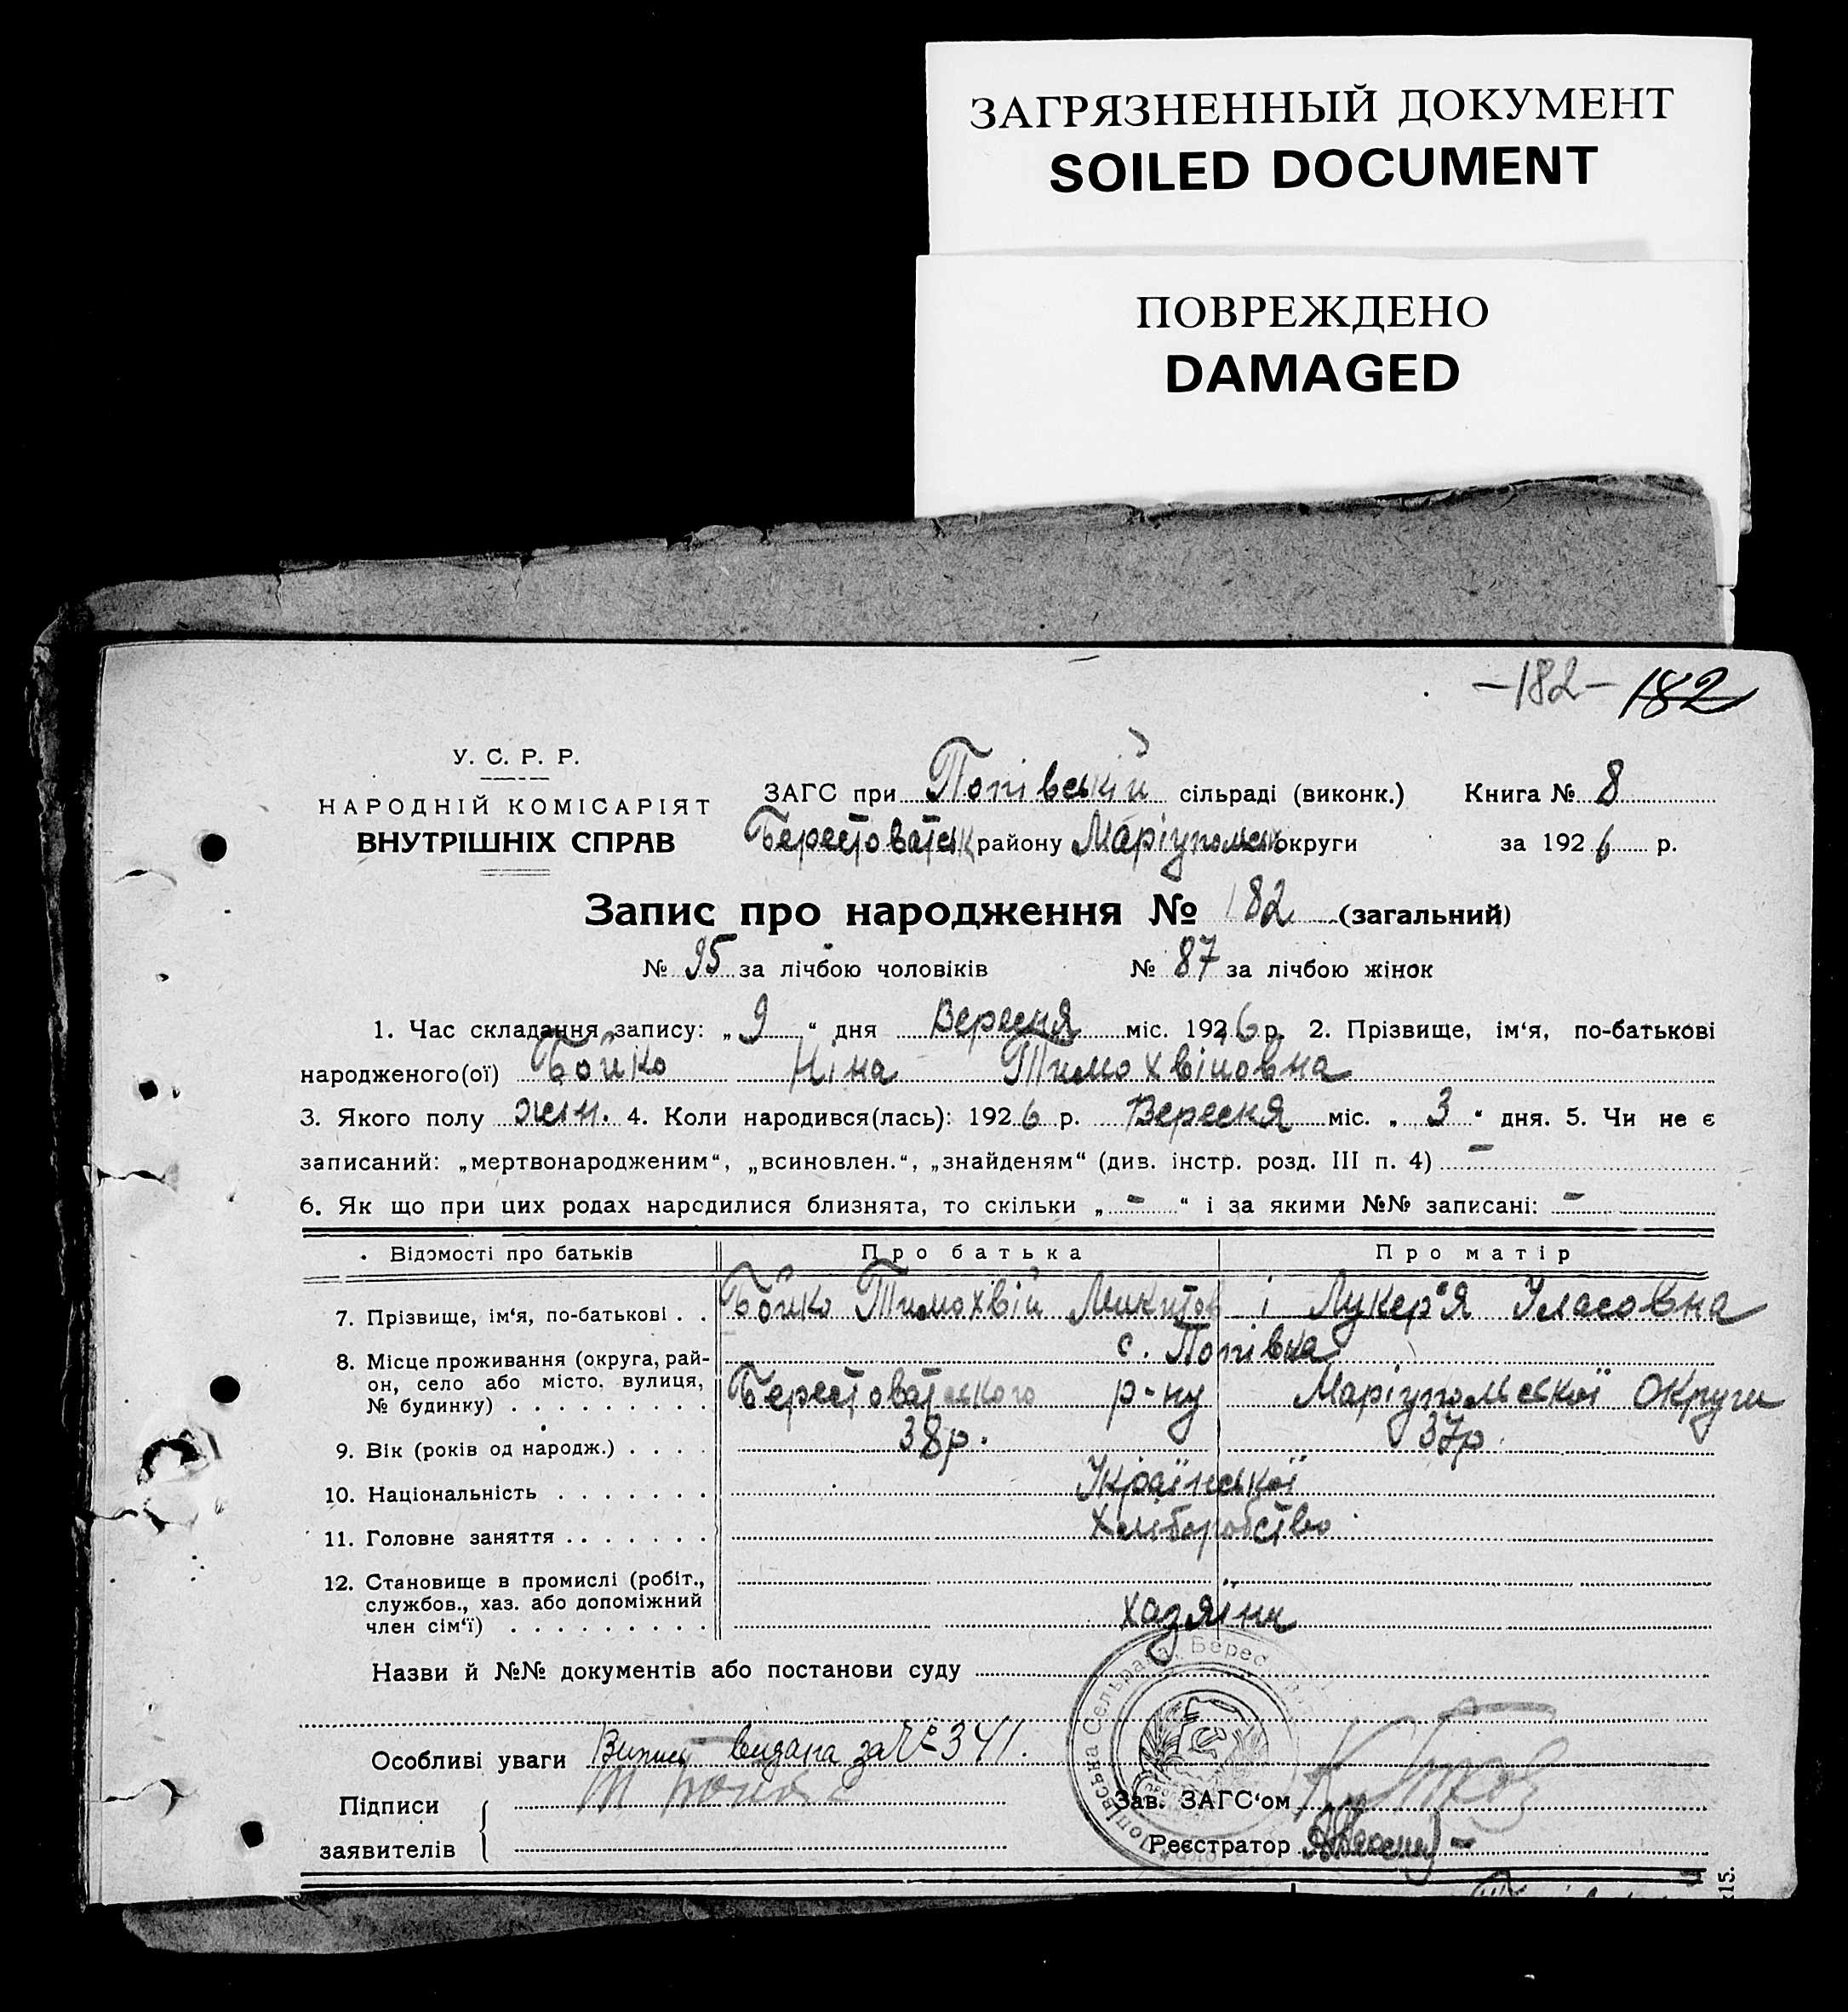 ЗАГРЯЗНЕННЫЙ ДОКУМЕНТ
SOILED DOCUMENT
ПОВРЕЖДЕНО
DAMAGED
-182- 182
У. С. Р. Р.
НАРОДНІЙ КОМІСАРІЯТ
ВНУТРІШНІХ СПРАВ
ЗАГС при Попівській сільраді (виконк.) Книга № 8
Берестоватськ району Маріупольськ округи за 1926 р.
Запис про народження № 182 (загальний)
№ 95 за лічбою чоловіків № 87 за лічбою жінок
1. Час складання запису: „9“ дня Вересня міс. 1926 р. 2. Прізвище, ім‘я, по-батькові
народженого(ої) Бойко Ніна Тимохвіповна
3. Якого полу жін. 4. Коли народився(лась): 1926 р. Вересня міс. „3“ дня. 5. Чи не є
записаний: „мертвонародженим“, „всиновлен.“, „знайденям“ (див. інстр. розд. III п. 4) –
6. Як що при цих родах народилися близнята, то скільки „–“ і за якими №№ записані: –
Відомості про батьків Про батька Про матір
7. Прізвище, ім‘я, по-батькові . . Бойко Тимохвій Микитов і Лукер'я Уласовна
8. Місце проживання (округа, рай- с. Попівка
он, село або місто, вулиця, Берестоватського р-ну Маріупольської Округи
№ будинку) . . . . . . . . .
9. Вік (років од народж.) . . . . 38р. 37р.
10. Національність . . . . . . . Української
11. Головне заняття . . . . . . . Хліборобство
12. Становище в промислі (робіт.,
службов., хаз. або допоміжний
член сім‘ї) . . . . . . . . . хазяїни
Назви й №№ документів або постанови суду
Особливі уваги Випись видана за № 341.
Підписи
заявителів
Зав. ЗАГС‘ом
Реєстратор
Попівська Сельрада Берес